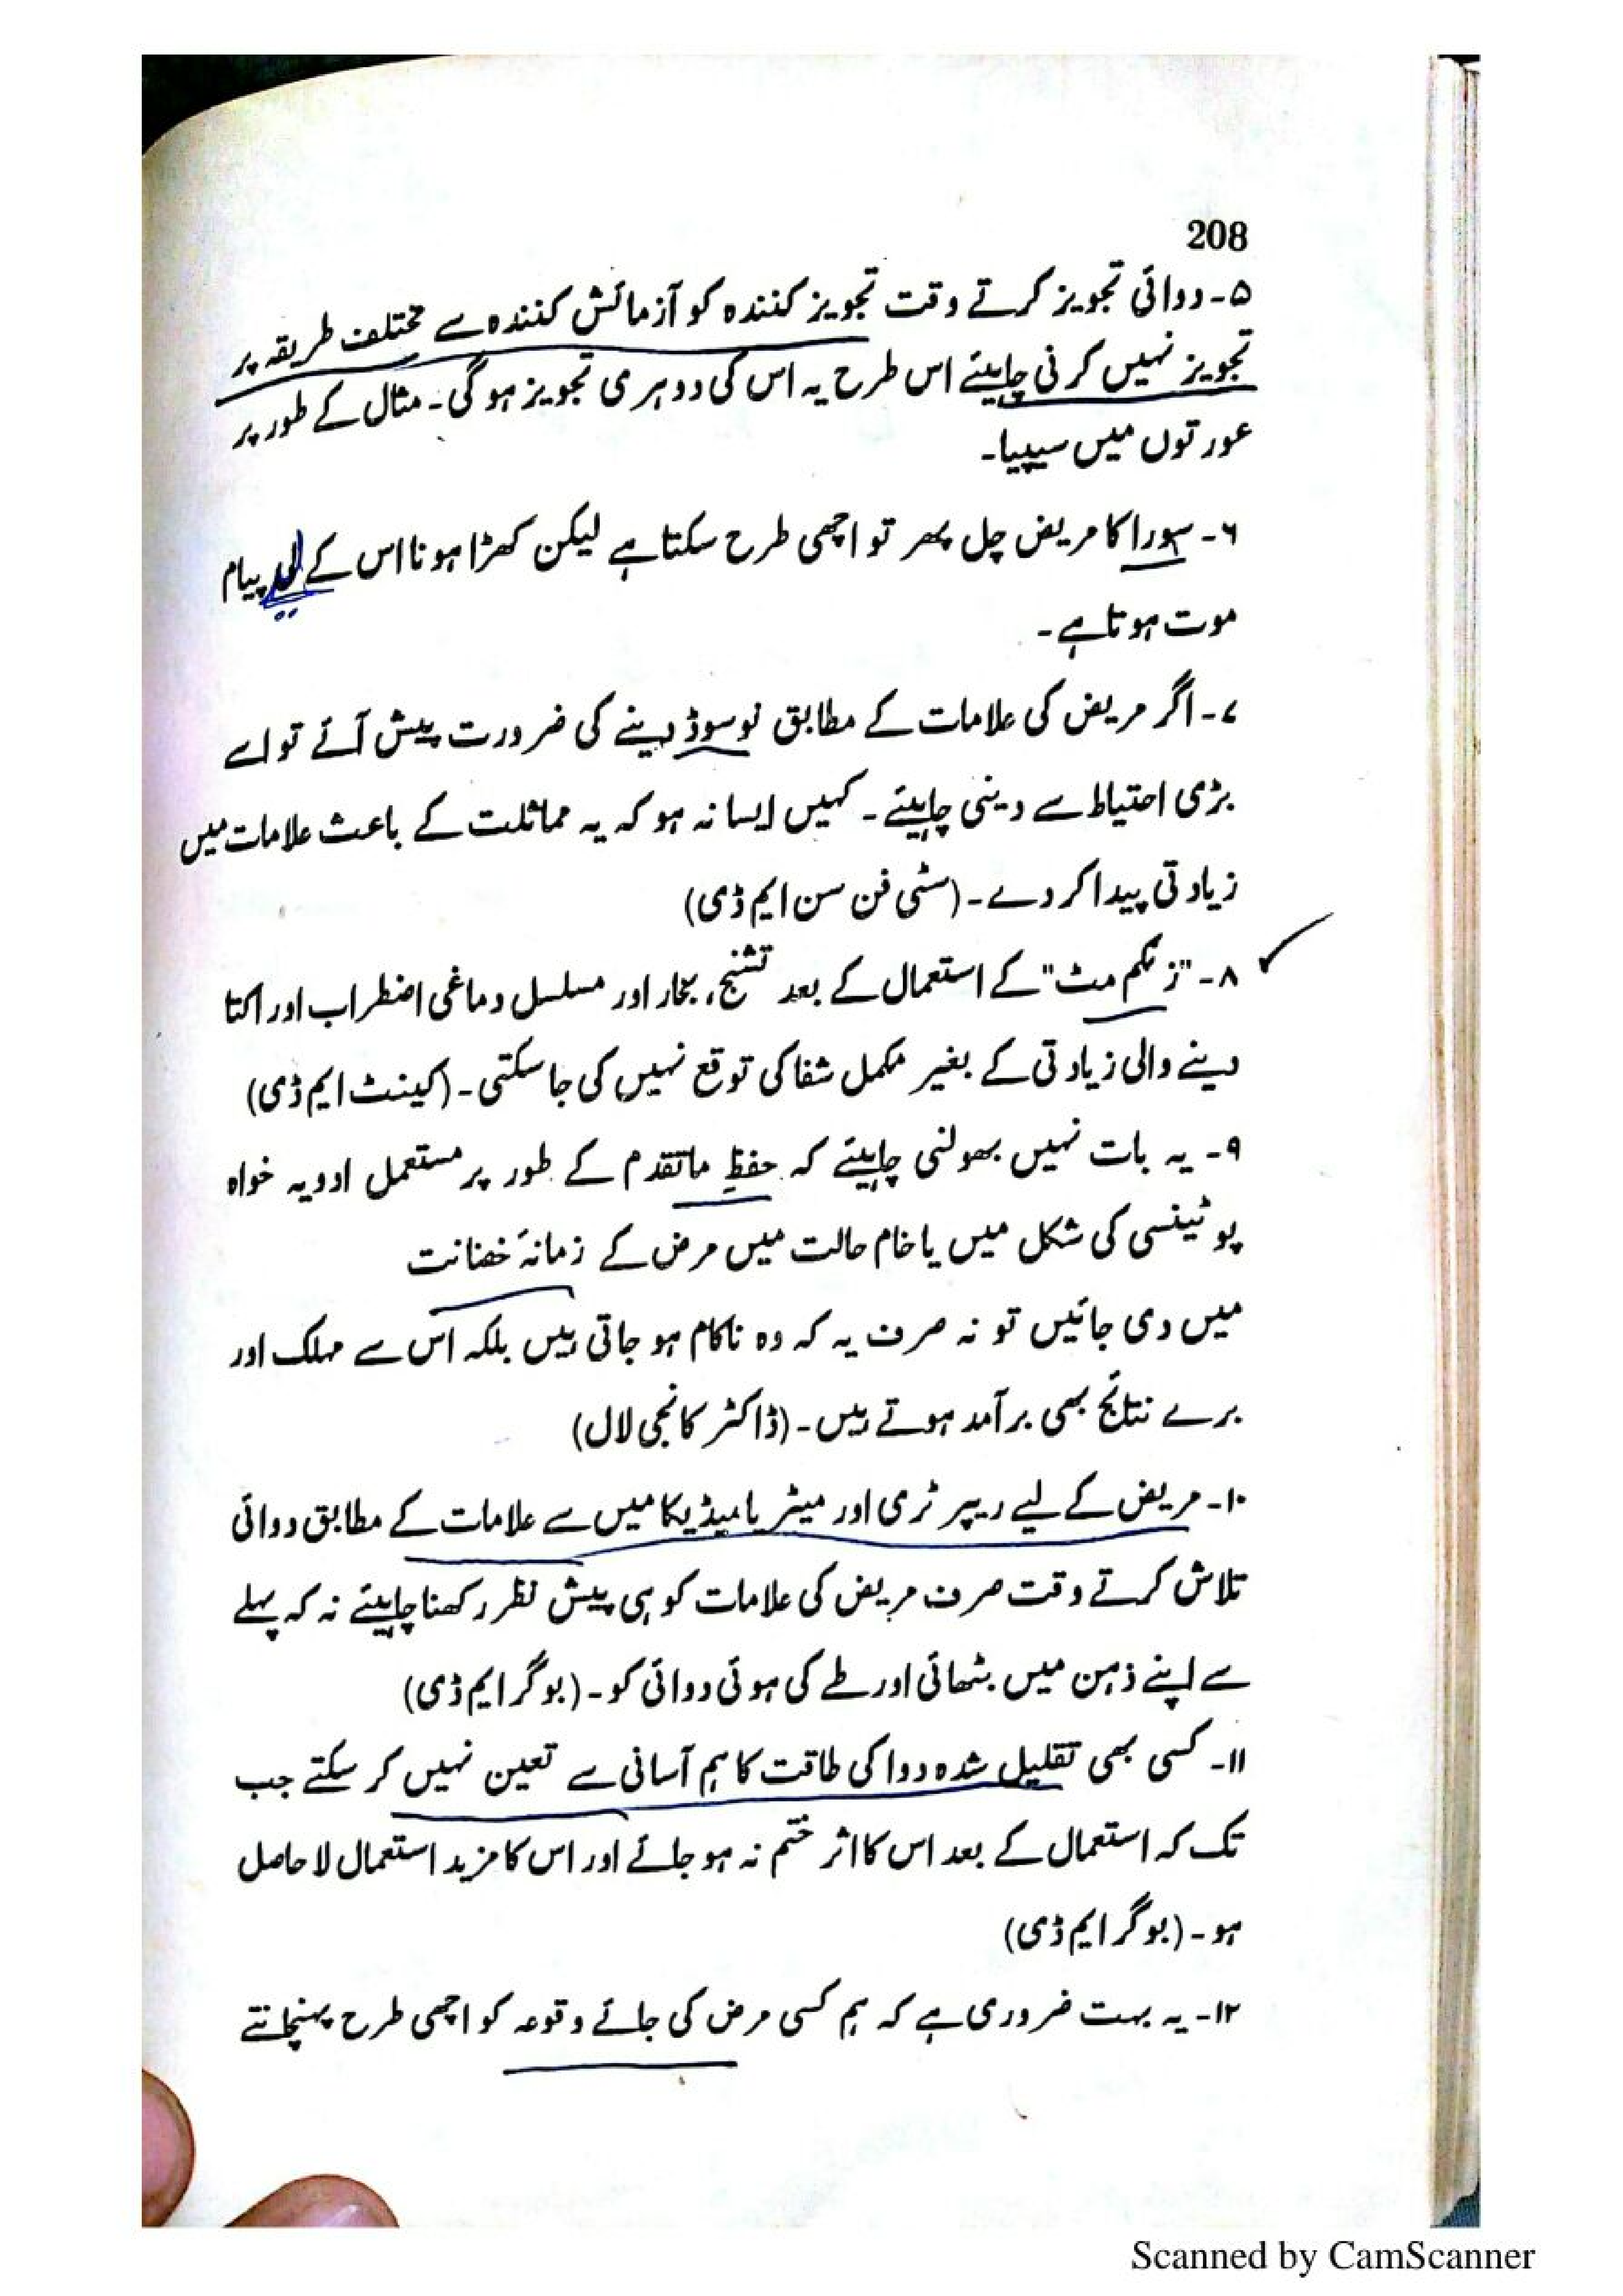 208
۵۔ دوائی تجویز کرتے وقت تجویز کنندہ کو آزمائش کنندہ سے مختلف طریقہ پر
تجویز نہیں کرنی چاہیئے اس طرح یہ اس کی دوہری تجویز ہو گی۔ مثال کے طور پر
عورتوں میں سیپیا۔
۶۔ سورا کا مریض چل پھر تو اچھی طرح سکتا ہے لیکن کھڑا ہونا اس کے لیے پیام
موت ہوتا ہے۔
۷۔ اگر مریض کی علامات کے مطابق نوسوڈ دینے کی ضرورت پیش آئے تو اسے
بڑی احتیاط سے دینی چاہیئے۔ کہیں ایسا نہ ہو کہ یہ مماثلت کے باعث علامات میں
زیادتی پیدا کر دے۔ (سٹی فن سن ایم ڈی)
۸۔ "زنکم مٹ" کے استعمال کے بعد تشنج، بخار اور مسلسل دماغی اضطراب اور اکتا
دینے والی زیادتی کے بغیر مکمل شفا کی توقع نہیں کی جا سکتی۔ (کینٹ ایم ڈی)
۹۔ یہ بات نہیں بھولنی چاہیئے کہ حفظِ ماتقدم کے طور پر مستعمل ادویہ خواہ
پوٹینسی کی شکل میں یا خام حالت میں مرض کے زمانۂ خضانت
میں دی جائیں تو نہ صرف یہ کہ وہ ناکام ہو جاتی ہیں بلکہ اس سے مہلک اور
برے نتائج بھی برآمد ہوتے ہیں۔ (ڈاکٹر کانجی لال)
۱۰۔ مریض کے لیے ریپرٹری اور میٹریا میڈیکا میں سے علامات کے مطابق دوائی
تلاش کرتے وقت صرف مریض کی علامات کو ہی پیش نظر رکھنا چاہیئے نہ کہ پہلے
سے اپنے ذہن میں بٹھائی اور طے کی ہوئی دوائی کو۔ (بوگر ایم ڈی)
۱۱۔ کسی بھی تقلیل شدہ دوا کی طاقت کا ہم آسانی سے تعین نہیں کر سکتے جب
تک کہ استعمال کے بعد اس کا اثر ختم نہ ہو جائے اور اس کا مزید استعمال لا حاصل
ہو۔ (بوگر ایم ڈی)
۱۲۔ یہ بہت ضروری ہے کہ ہم کسی مرض کی جائے وقوعہ کو اچھی طرح پہنچانتے
Scanned by CamScanner